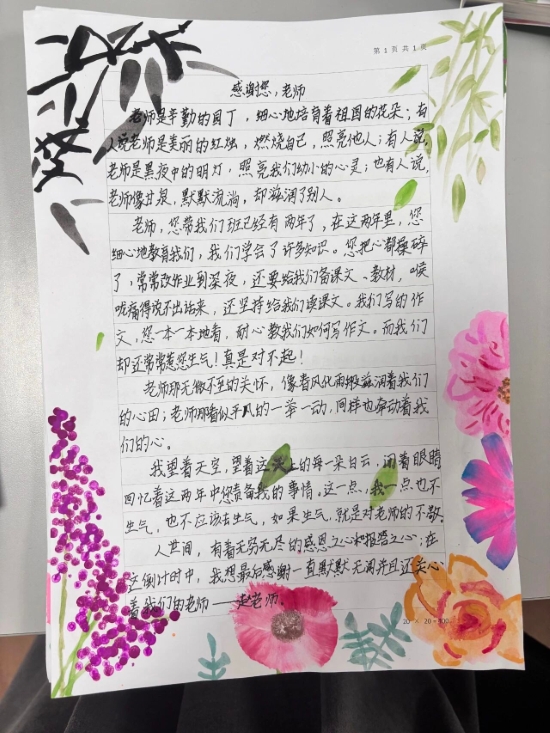 第 1 页 共 1 页
感谢您，老师
老师是辛勤的园丁，细心地培育着祖国的花朵；有
人说老师是美丽的红烛，燃烧自己，照亮他人；有人说，
老师是黑夜中的明灯，照亮我们幼小的心灵；也有人说，
老师像甘泉，默默流淌，却滋润了别人。
老师，您带我们班已经有两年了，在这两年里，您
细心地教育我们，我们学会了许多知识。您把心都操碎
了，常常改作业到深夜，还要给我们备课文、教材，喉
咙痛得说不出话来，还坚持给我们读课文。我们写的作
文，您一本一本地看，耐心教我们如何写作文。而我们
却还常常惹您生气！真是对不起！
老师那无微不至的关怀，像春风化雨般滋润着我们
的心田；老师那看似平凡的一举一动，同样也牵动着我
们的心。
我望着天空，望着这天上的每一朵白云，闭着眼睛
回忆着这两年中您责备我的事情。这一点，我一点也不
生气，也不应该去生气，如果生气，就是对老师的不敬。
人世间，有着无穷无尽的感恩之心和报答之心，在
这倒计时中，我想最后感谢一直默默无闻并且还关心
着我们的老师——赵老师。
20 × 20 = 400